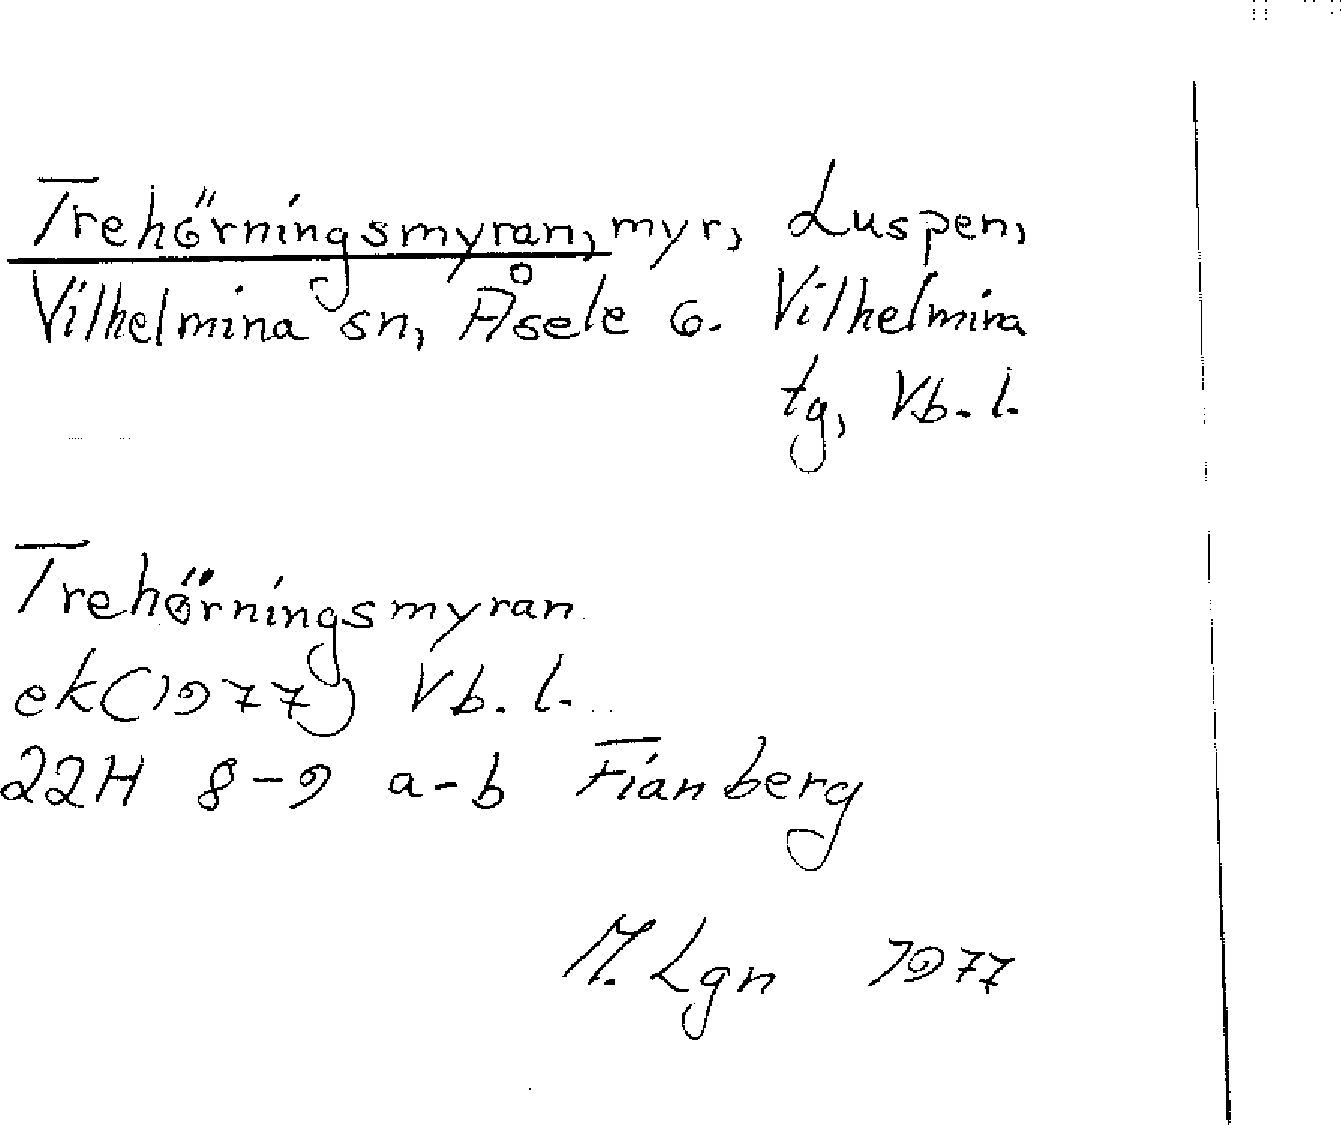 Trehörningsmyran, myr, Luspen,
Vilhelmina sn, Åsele G. Vilhelmina
tg, Vb. l.
Trehörningsmyran
ek(1977) Vb. l.
22H 8-9 a-b Fianberg
M. Lgn 1977